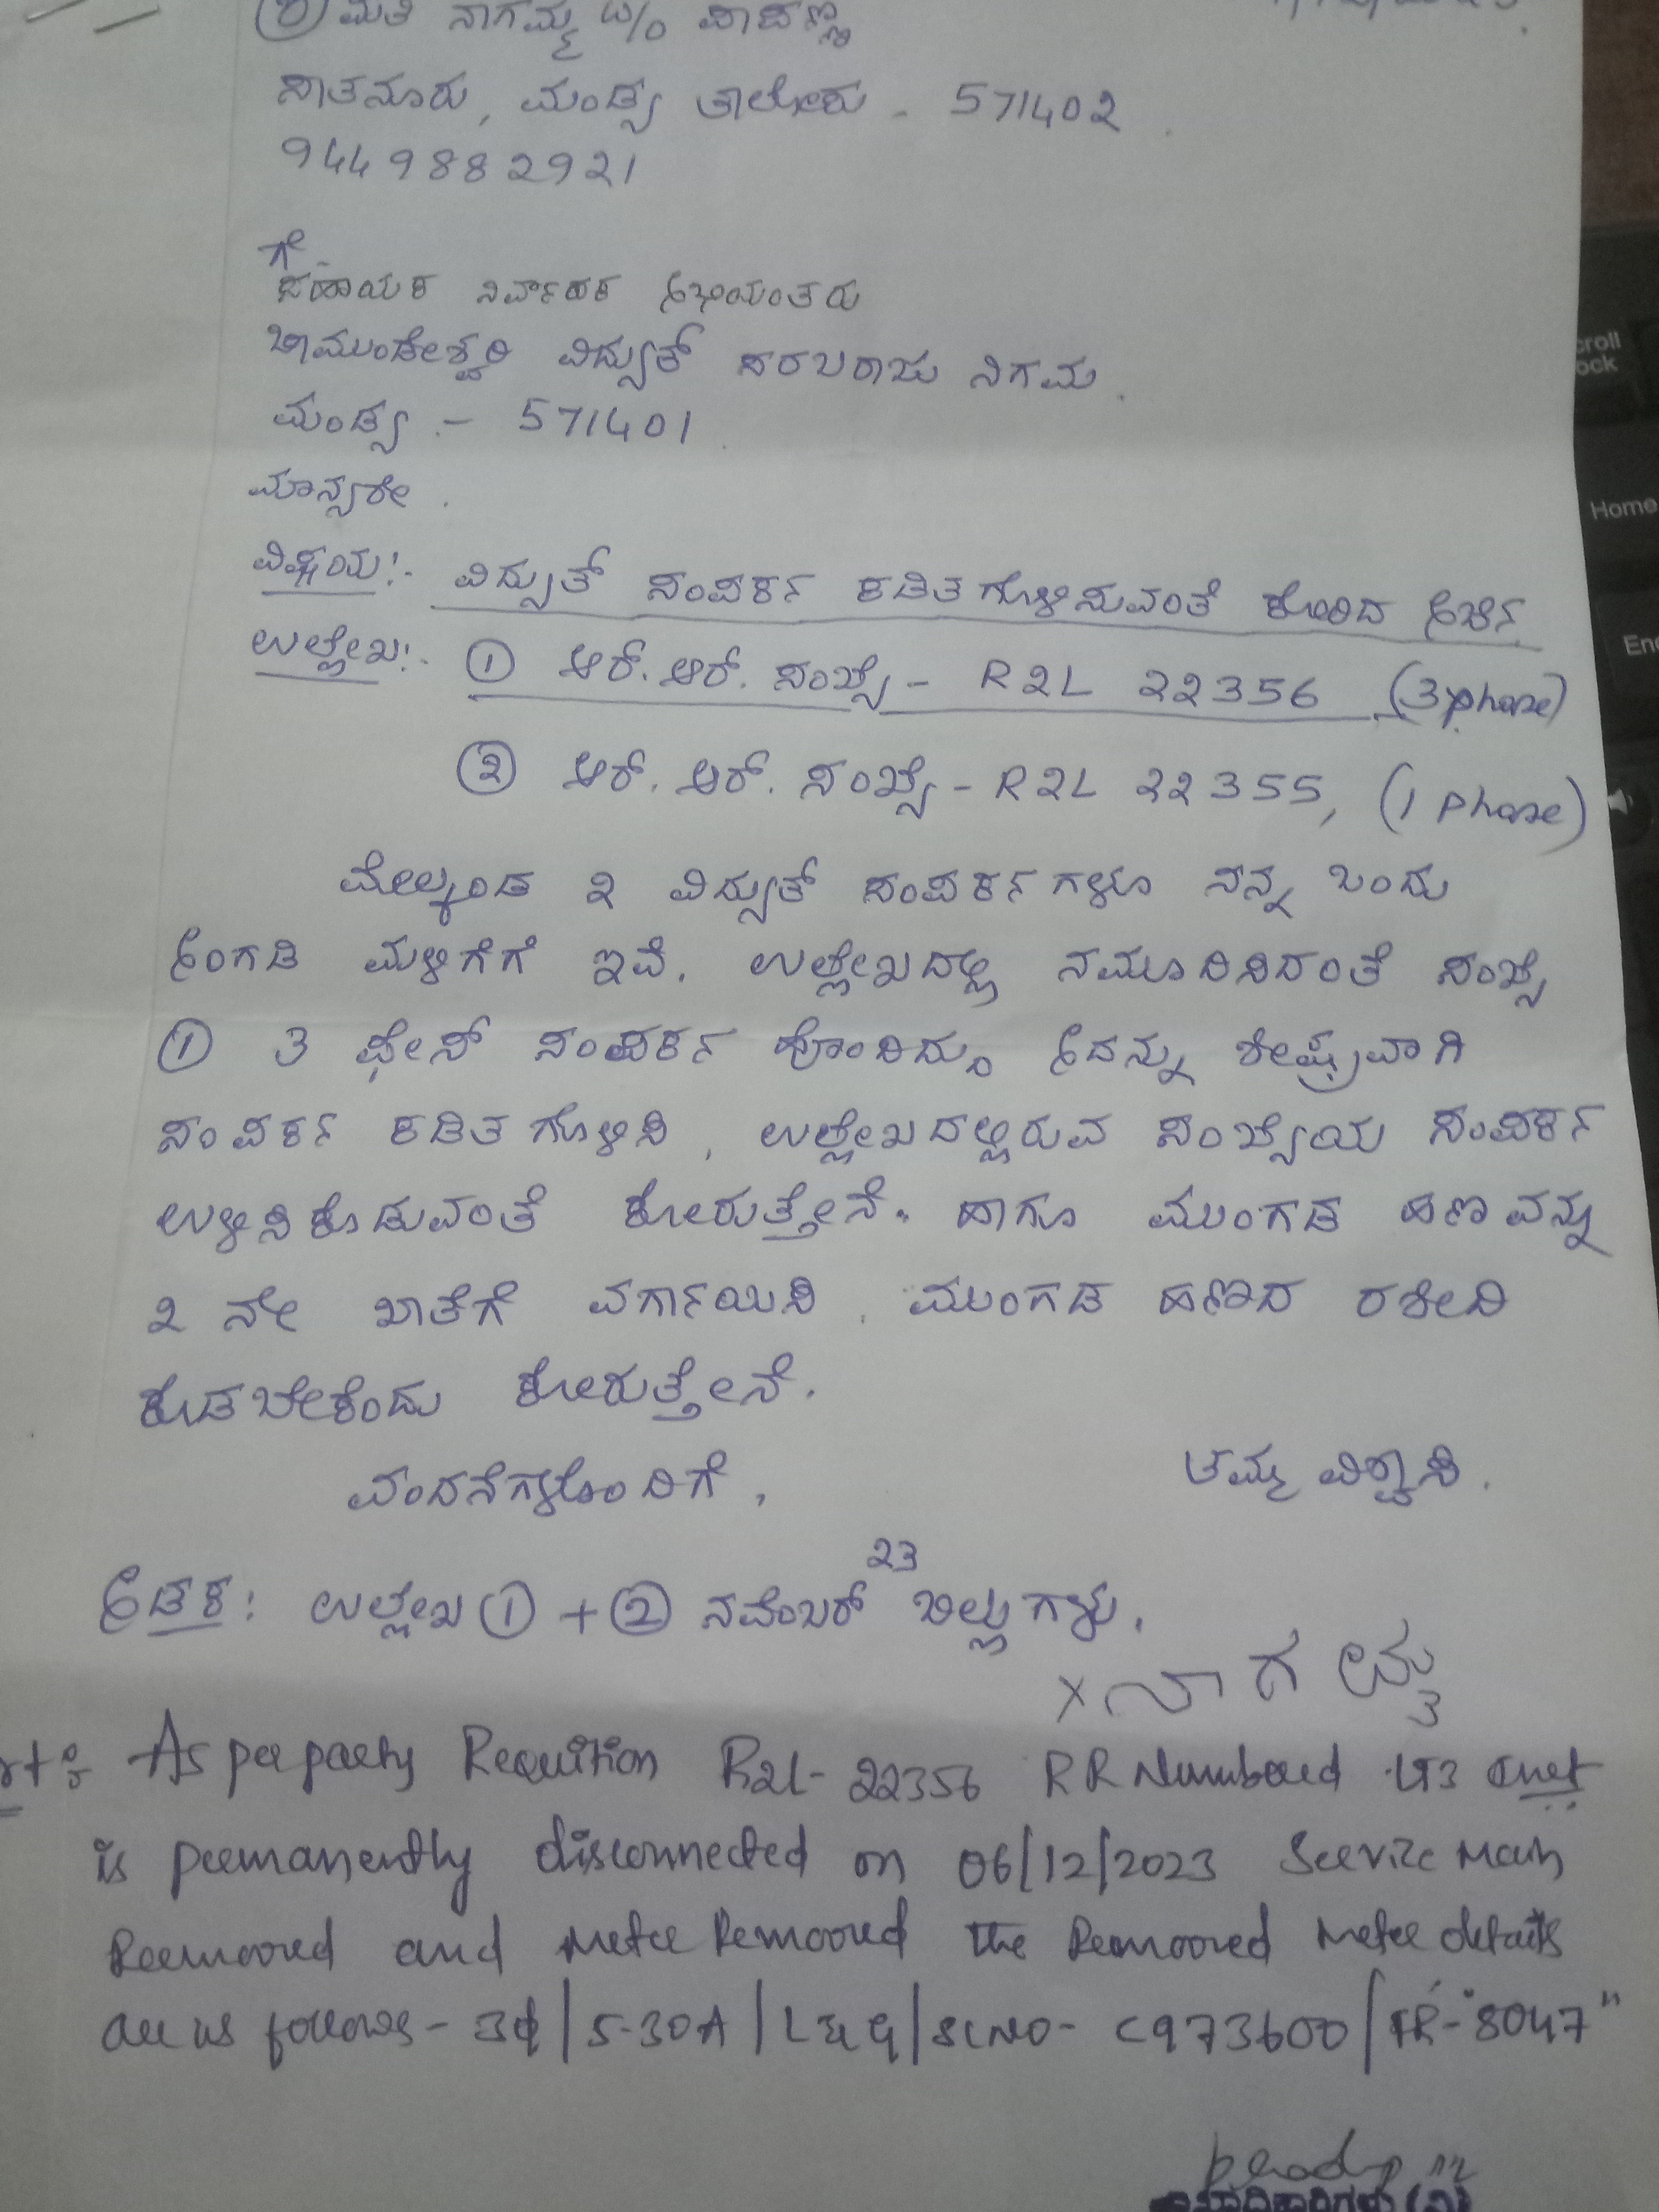 ಶ್ರೀಮತಿ ನಾಗಮ್ಮ w/o ಪಾಪಣ್ಣ
ಸಾತನೂರು, ಮಂಡ್ಯ ತಾಲೋಕು - 571402
9449882921
ಗೆ
ಸಹಾಯಕ ನಿರ್ವಾಹಕ ಅಭಿಯಂತರು
ಚಾಮುಂಡೇಶ್ವರಿ ವಿದ್ಯುತ್ ಸರಬರಾಜು ನಿಗಮ.
ಮಂಡ್ಯ - 571401
ಮಾನ್ಯರೇ.
ವಿಷಯ:- ವಿದ್ಯುತ್ ಸಂಪರ್ಕ ಕಡಿತಗೊಳಿಸುವಂತೆ ಕೋರಿದ ಅರ್ಜಿ
ಉಲ್ಲೇಖ:- ① ಆರ್.ಆರ್. ಸಂಖ್ಯೆ - R2L 22356 (3 phase)
② ಆರ್. ಆರ್. ಸಂಖ್ಯೆ - R2L 22355, (1 phase)
ಮೇಲ್ಕಂಡ 2 ವಿದ್ಯುತ್ ಸಂಪರ್ಕಗಳೂ ನನ್ನ ಒಂದು
ಅಂಗಡಿ ಮಳಿಗೆಗೆ ಇವೆ. ಉಲ್ಲೇಖದಲ್ಲಿ ನಮೂದಿಸಿದಂತೆ ಸಂಖ್ಯೆ
① 3 ಫೇಸ್ ಸಂಪರ್ಕ ಹೊಂದಿದ್ದು ಅದನ್ನು ಶೀಘ್ರವಾಗಿ
ಸಂಪರ್ಕ ಕಡಿತಗೊಳಿಸಿ, ಉಲ್ಲೇಖದಲ್ಲಿರುವ ಸಂಖ್ಯೆಯ ಸಂಪರ್ಕ
ಉಳಿಸಿಕೊಡುವಂತೆ ಕೋರುತ್ತೇನೆ. ಹಾಗೂ ಮುಂಗಡ ಹಣವನ್ನು
2 ನೇ ಖಾತೆಗೆ ವರ್ಗಾಯಿಸಿ. ಮುಂಗಡ ಹಣದ ರಶೀದಿ
ಕೊಡಬೇಕೆಂದು ಕೋರುತ್ತೇನೆ.
ವಂದನೆಗಳೊಂದಿಗೆ, ತಮ್ಮ ವಿಶ್ವಾಸಿ.
ಅಡಕ: ಉಲ್ಲೇಖ ① + ② ನವೆಂಬರ್ 23 ಬಿಲ್ಲುಗಳು.
x ನಾಗಮ್ಮ
As per party Requition R2L-22356 RR Numbered LT3
is permanently disconnected on 06/12/2023 Service Main
Reemooved and Meter Remooved The Remooved Meter details
are as follows - 3ϕ | 5-30A | L&G | Sl NO - C973600 | FR - "8047"